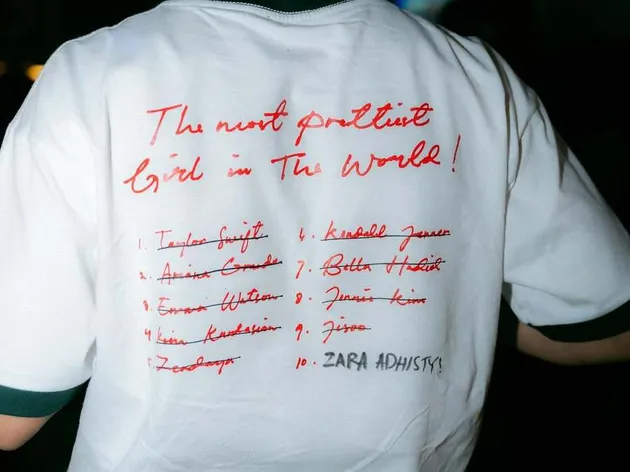 The most prettiest
Girl in The World!
1. Taylor Swift
2. Ariana Grande
3. Emma Watson
4. Kim Kardasian
5. Zendaya
6. Kendall Jenner
7. Bella Hadid
8. Jennie Kim
9. Jisoo
10. ZARA ADHISTY!